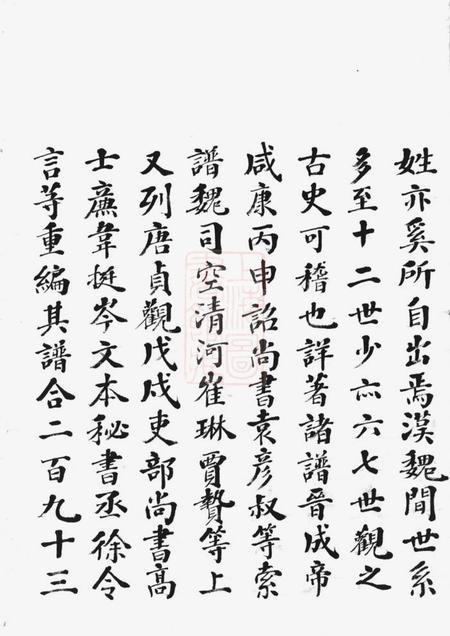 姓亦奚所自出焉漢魏間世系
多至十二世少亦六七世觀之
古史可稽也詳著諸譜晉成帝
咸康丙申詔尚書袁彥叔等索
譜魏司空清河崔琳賈贄等上
又列唐貞觀戊戌吏部尚書高
士廉韋挺岑文本秘書丞徐令
言等重編其譜合二百九十三